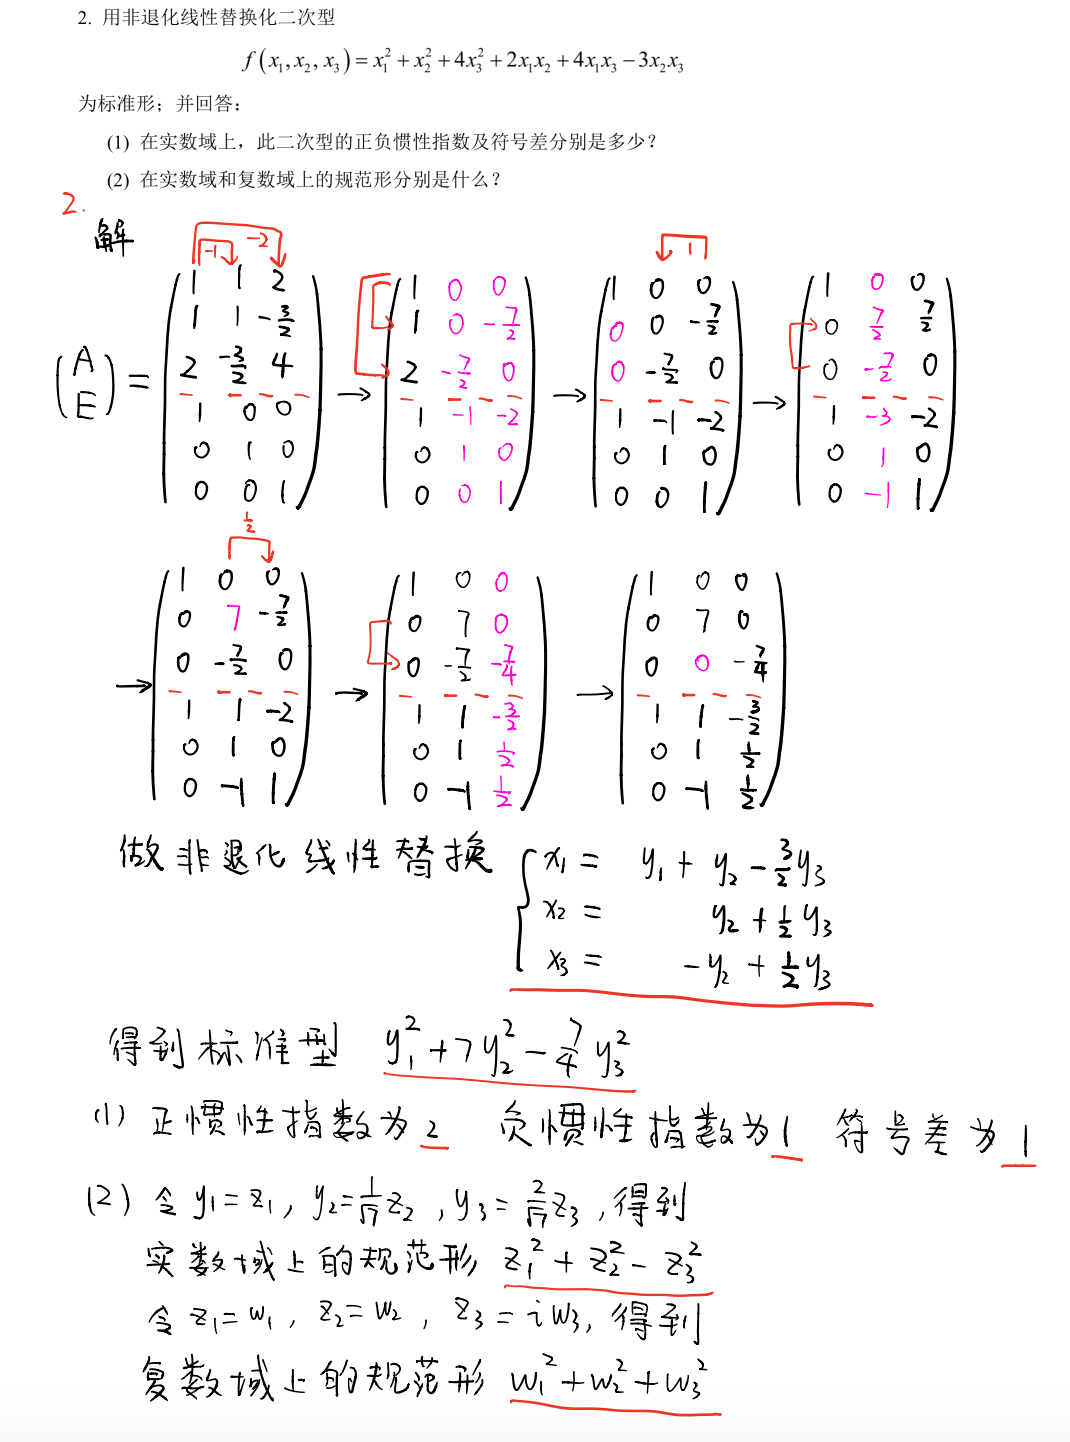 2. 用非退化线性替换化二次型
f(x₁,x₂,x₃)=x₁²+x₂²+4x₃²+2x₁x₂+4x₁x₃−3x₂x₃
为标准形；并回答：
(1) 在实数域上，此二次型的正负惯性指数及符号差分别是多少？
(2) 在实数域和复数域上的规范形分别是什么？
2.
解
-1 -2
1
(A
E) =
1 1 2
1 1 -3/2
2 -3/2 4
1 0 0
0 1 0
0 0 1
→
1 0 0
1 0 -7/2
2 -7/2 0
1 -1 -2
0 1 0
0 0 1
→
1 0 0
0 0 -7/2
0 -7/2 0
1 -1 -2
0 1 0
0 0 1
→
1 0 0
0 7/2 7/2
0 -7/2 0
1 -3 -2
0 1 0
0 -1 1
1/2
→
1 0 0
0 7 -7/2
0 -7/2 0
1 1 -2
0 1 0
0 -1 1
→
1 0 0
0 7 0
0 -7/2 -7/4
1 1 -3/2
0 1 1/2
0 -1 1/2
→
1 0 0
0 7 0
0 0 -7/4
1 1 -3/2
0 1 1/2
0 -1 1/2
做非退化线性替换
x₁ = y₁ + y₂ - 3/2 y₃
x₂ = y₂ + 1/2 y₃
x₃ = -y₂ + 1/2 y₃
得到标准型 y₁²+7y₂²-7/4 y₃²
(1) 正惯性指数为2 负惯性指数为1 符号差为1
(2) 令 y₁=z₁, y₂=1/√7 z₂, y₃=2/√7 z₃, 得到
实数域上的规范形 z₁²+z₂²-z₃²
令 z₁=w₁, z₂=w₂, z₃=iw₃, 得到
复数域上的规范形 w₁²+w₂²+w₃²